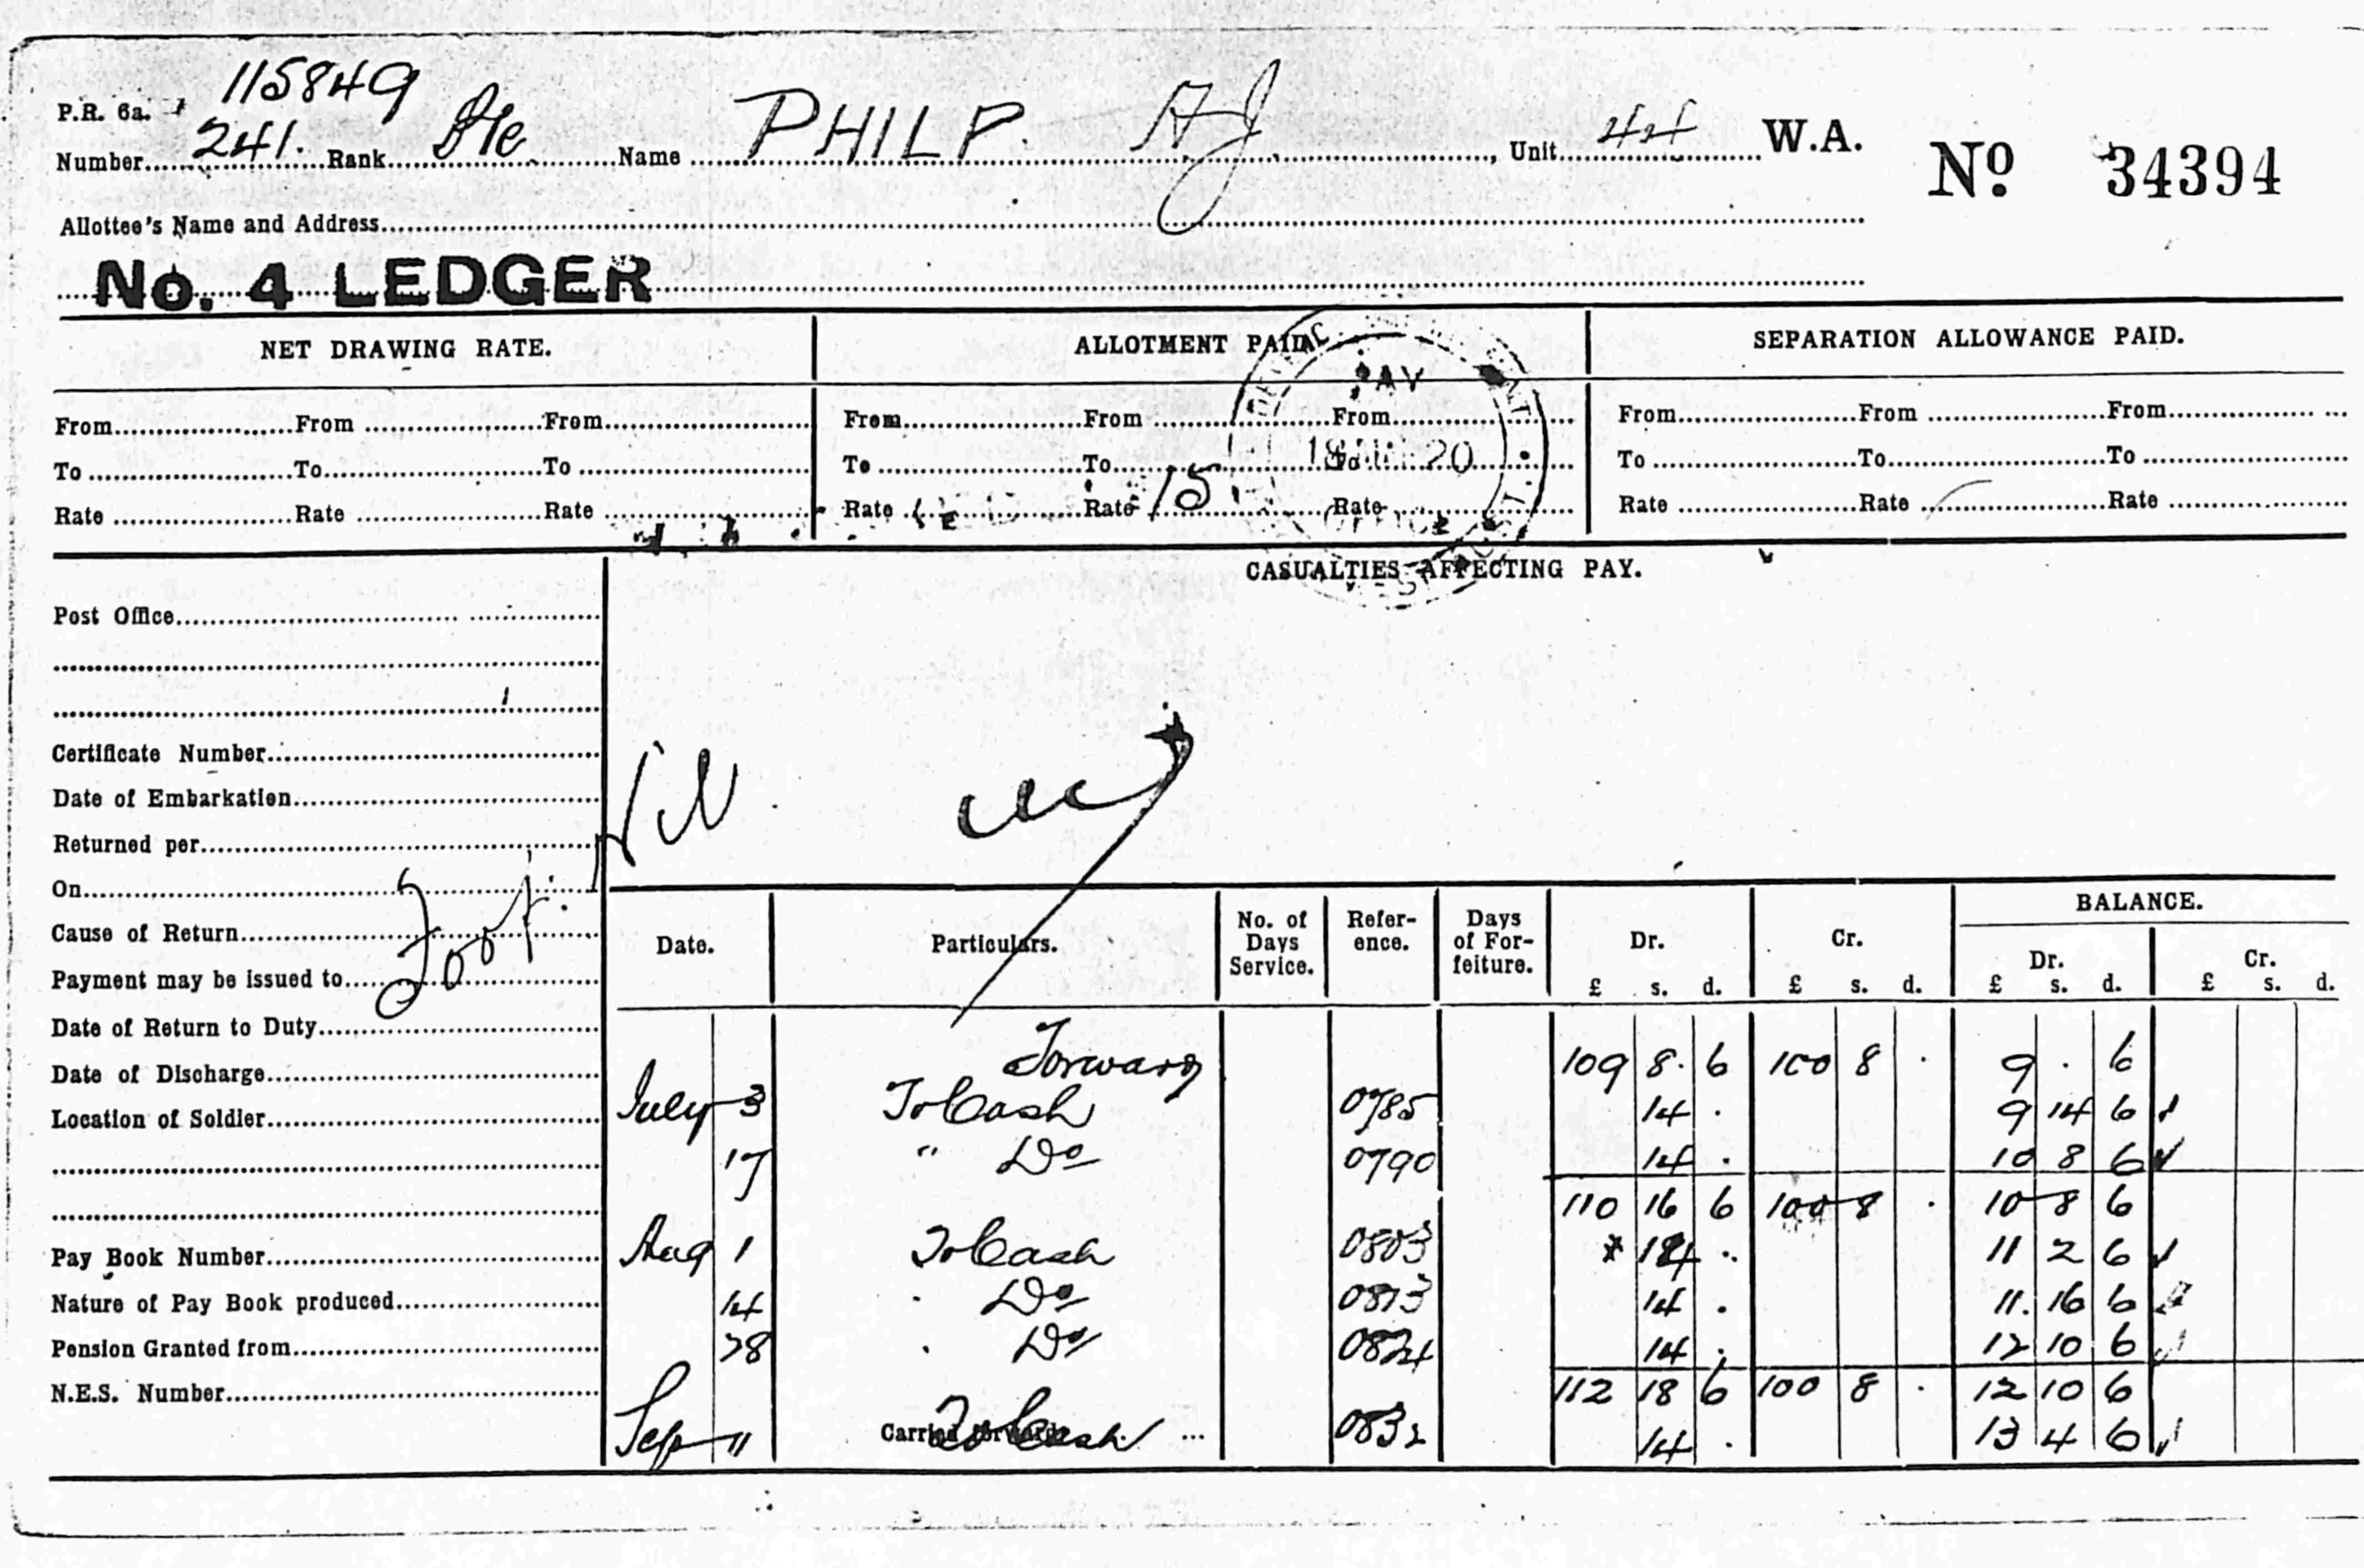 115849
P.R. 6a.
Number 241. Rank Pte Name PHILP. A J Unit 44 W.A. No 34394
Allottee's Name and Address
No. 4 LEDGER
NET DRAWING RATE. ALLOTMENT PAID. SEPARATION ALLOWANCE PAID.
PAY
From From From From From From From From From
18 20
To To To To To To To To To
Rate Rate Rate Rate Rate 15 Rate Rate Rate Rate
OFFICE
CASUALTIES AFFECTING PAY.
Post Office
Certificate Number
Date of Embarkation
Nil
Returned per
On
Cause of Return
Foot.
Payment may be issued to
Date of Return to Duty
Date of Discharge
Location of Soldier
Pay Book Number
Nature of Pay Book produced
Pension Granted from
N.E.S. Number
Date. Particulars. No. of Days Service. Refer-ence. Days of For-feiture. Dr. Cr. BALANCE.
Dr. Cr.
£ s. d. £ s. d. £ s. d. £ s. d.
Forward 109 8. 6 100 8 . 9 . 6
July 3 To Cash 0785 14 . 9 14 6
17 " Do 0790 14 . 10 8 6
110 16 6 100 8 . 10 8 6
Aug 1 To Cash 0803 14 . 11 2 6
14 Do 0813 14 . 11. 16 6
28 Do 0824 14 . 12 10 6
112 18 6 100 8 . 12 10 6
Sep 11 Carried forward To Cash ... 0832 14 . 13 4 6